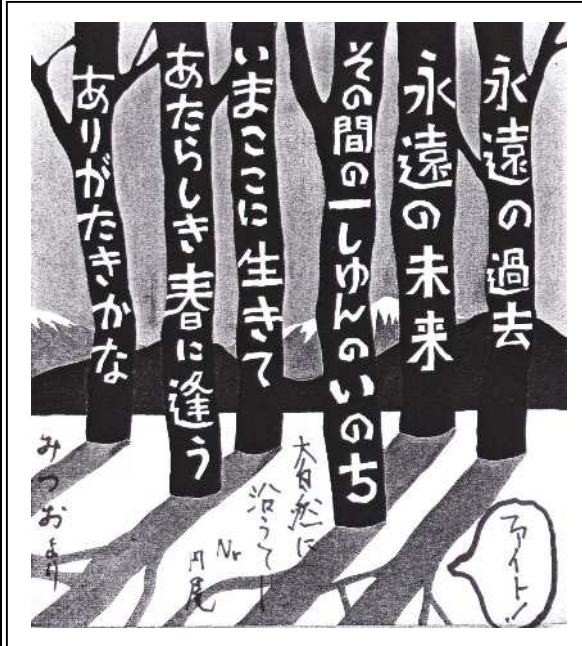 永遠の過去
永遠の未来
その間の一しゅんのいのち
いまここに生きて
あたらしき春に逢う
ありがたきかな
ファイト!
大自然に
沿うてー
Nr
円尾
みつおより